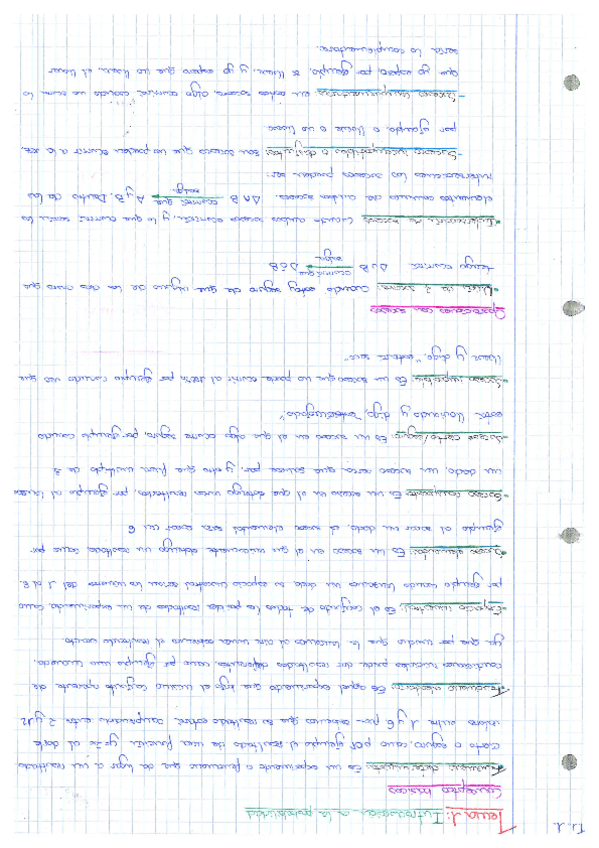 Tema 1: Introducción a la probabilidad
Conceptos básicos
Fenómeno determinista: Es un experimento o fenómeno que da lugar a un resultado
cierto o seguro, como por ejemplo el resultado de una función ya que al darle
valores entre 1 y 6 para sabemos que su resultado estará comprendido entre 2 y 12
Fenómeno aleatorio: Es aquel experimento que bajo el mismo conjunto aparente de
condiciones iniciales puede dar resultados diferentes, como por ejemplo una moneda,
ya que por mucho que la lancemos al aire nunca sabremos el resultado cuando
Espacio muestral: Es el conjunto de todos los posibles resultados de un experimento, como
por ejemplo cuando lanzamos un dado su espacio muestral serían los números del 1 al
Suceso elemental: Es un suceso en el que únicamente obtengo un resultado como por
ejemplo al tirar un dado, el suceso elemental sería sacar un 6
Suceso compuesto: Es un suceso en el que obtengo varios resultados, por ejemplo al lanzar
un dado, un suceso sería que saliese par, y otro que fuera múltiplo de 3
Suceso cierto/seguro: Es un suceso en el que algo ocurre seguro, por ejemplo cuando
está lloviendo y digo,
Suceso imposible: Es un suceso que no puede ocurrir al 100% por ejemplo cuando veo que
llueve y digo,
Operaciones con sucesos
Unión de 2 sucesos: Cuando estoy seguro de que alguno de los dos creo que
tengo ocurrirá. A∪B ocurrirá que A ó B
Intersección de sucesos: Cuando ambos sucesos ocurrirán, y lo que ocurrirá serán los
elementos comunes de ambos sucesos. A∩B ocurrirá que A y B. Dentro de las
intersecciones los sucesos pueden ser:
Sucesos incompatibles o disjuntos: son sucesos que no pueden ocurrir a la vez,
por ejemplo, o llueve o no llueve
Sucesos complementarios: en estos sucesos, algo ocurrirá cuando no ocurra lo
que yo espero, por ejemplo, si llueve, y yo espero que no llueva, el llover
sería lo complementario.